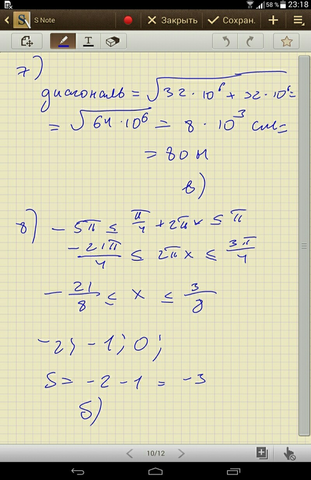 23:18
58 %
S Note
Закрыть
Сохран.
7)
диагональ = √32·10⁶ + 32·10⁶ =
= √64·10⁶ = 8 · 10³ см =
= 80 м
в)
8) -5π ≤ π/4 + 2πx ≤ π
-21π/4 ≤ 2πx ≤ 3π/4
-21/8 ≤ x ≤ 3/8
-2; -1; 0;
S = -2 - 1 = -3
б)
10/12